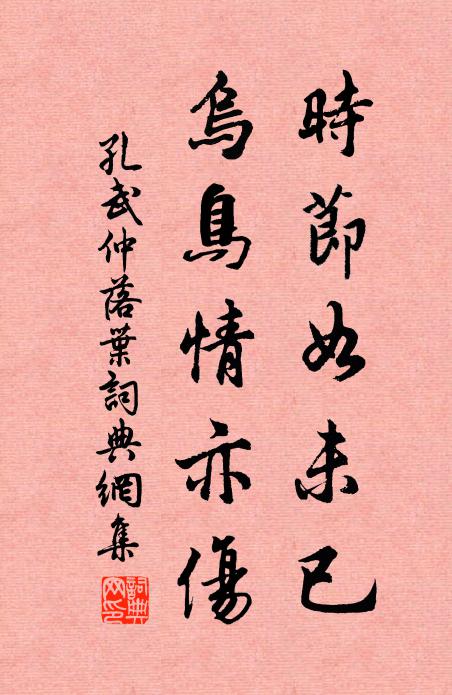 時節如未已
烏鳥情亦傷
孔武仲落葉詞典網集
詞典網印